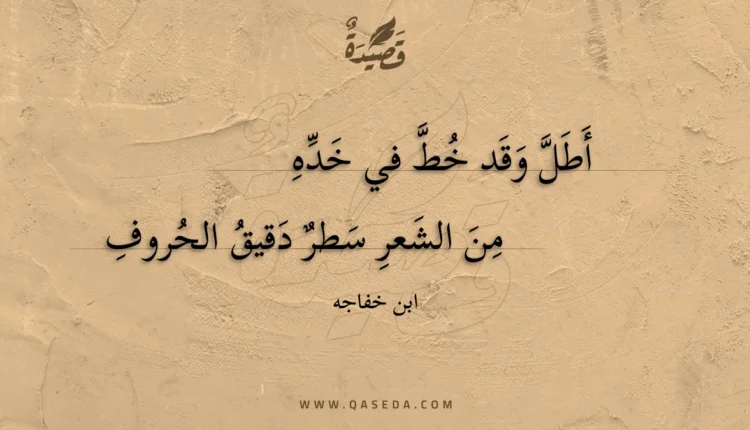 قَصِيدَةٌ
أَطَلَّ وَقَد خُطَّ في خَدِّهِ
مِنَ الشَعرِ سَطرٌ دَقيقُ الحُروفِ
ابن خفاجه
WWW.QASEDA.COM